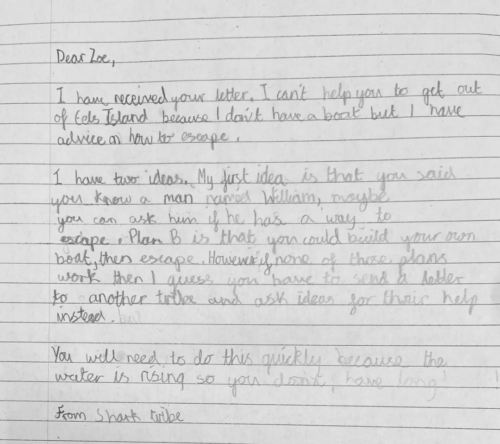 Dear Zoe,
I have received your letter. I can't help you to get out
of Eels Island because I don't have a boat but I have
advice on how to escape.
I have two ideas. My first idea is that you said
you know a man named William, maybe
you can ask him if he has a way to
escape. Plan B is that you could build your own
boat, then escape. However if none of those plans
work then I guess you have to send a letter
to another tribe and ask ideas for their help
instead.
You will need to do this quickly because the
water is rising so you don't, have long!
From Shark tribe